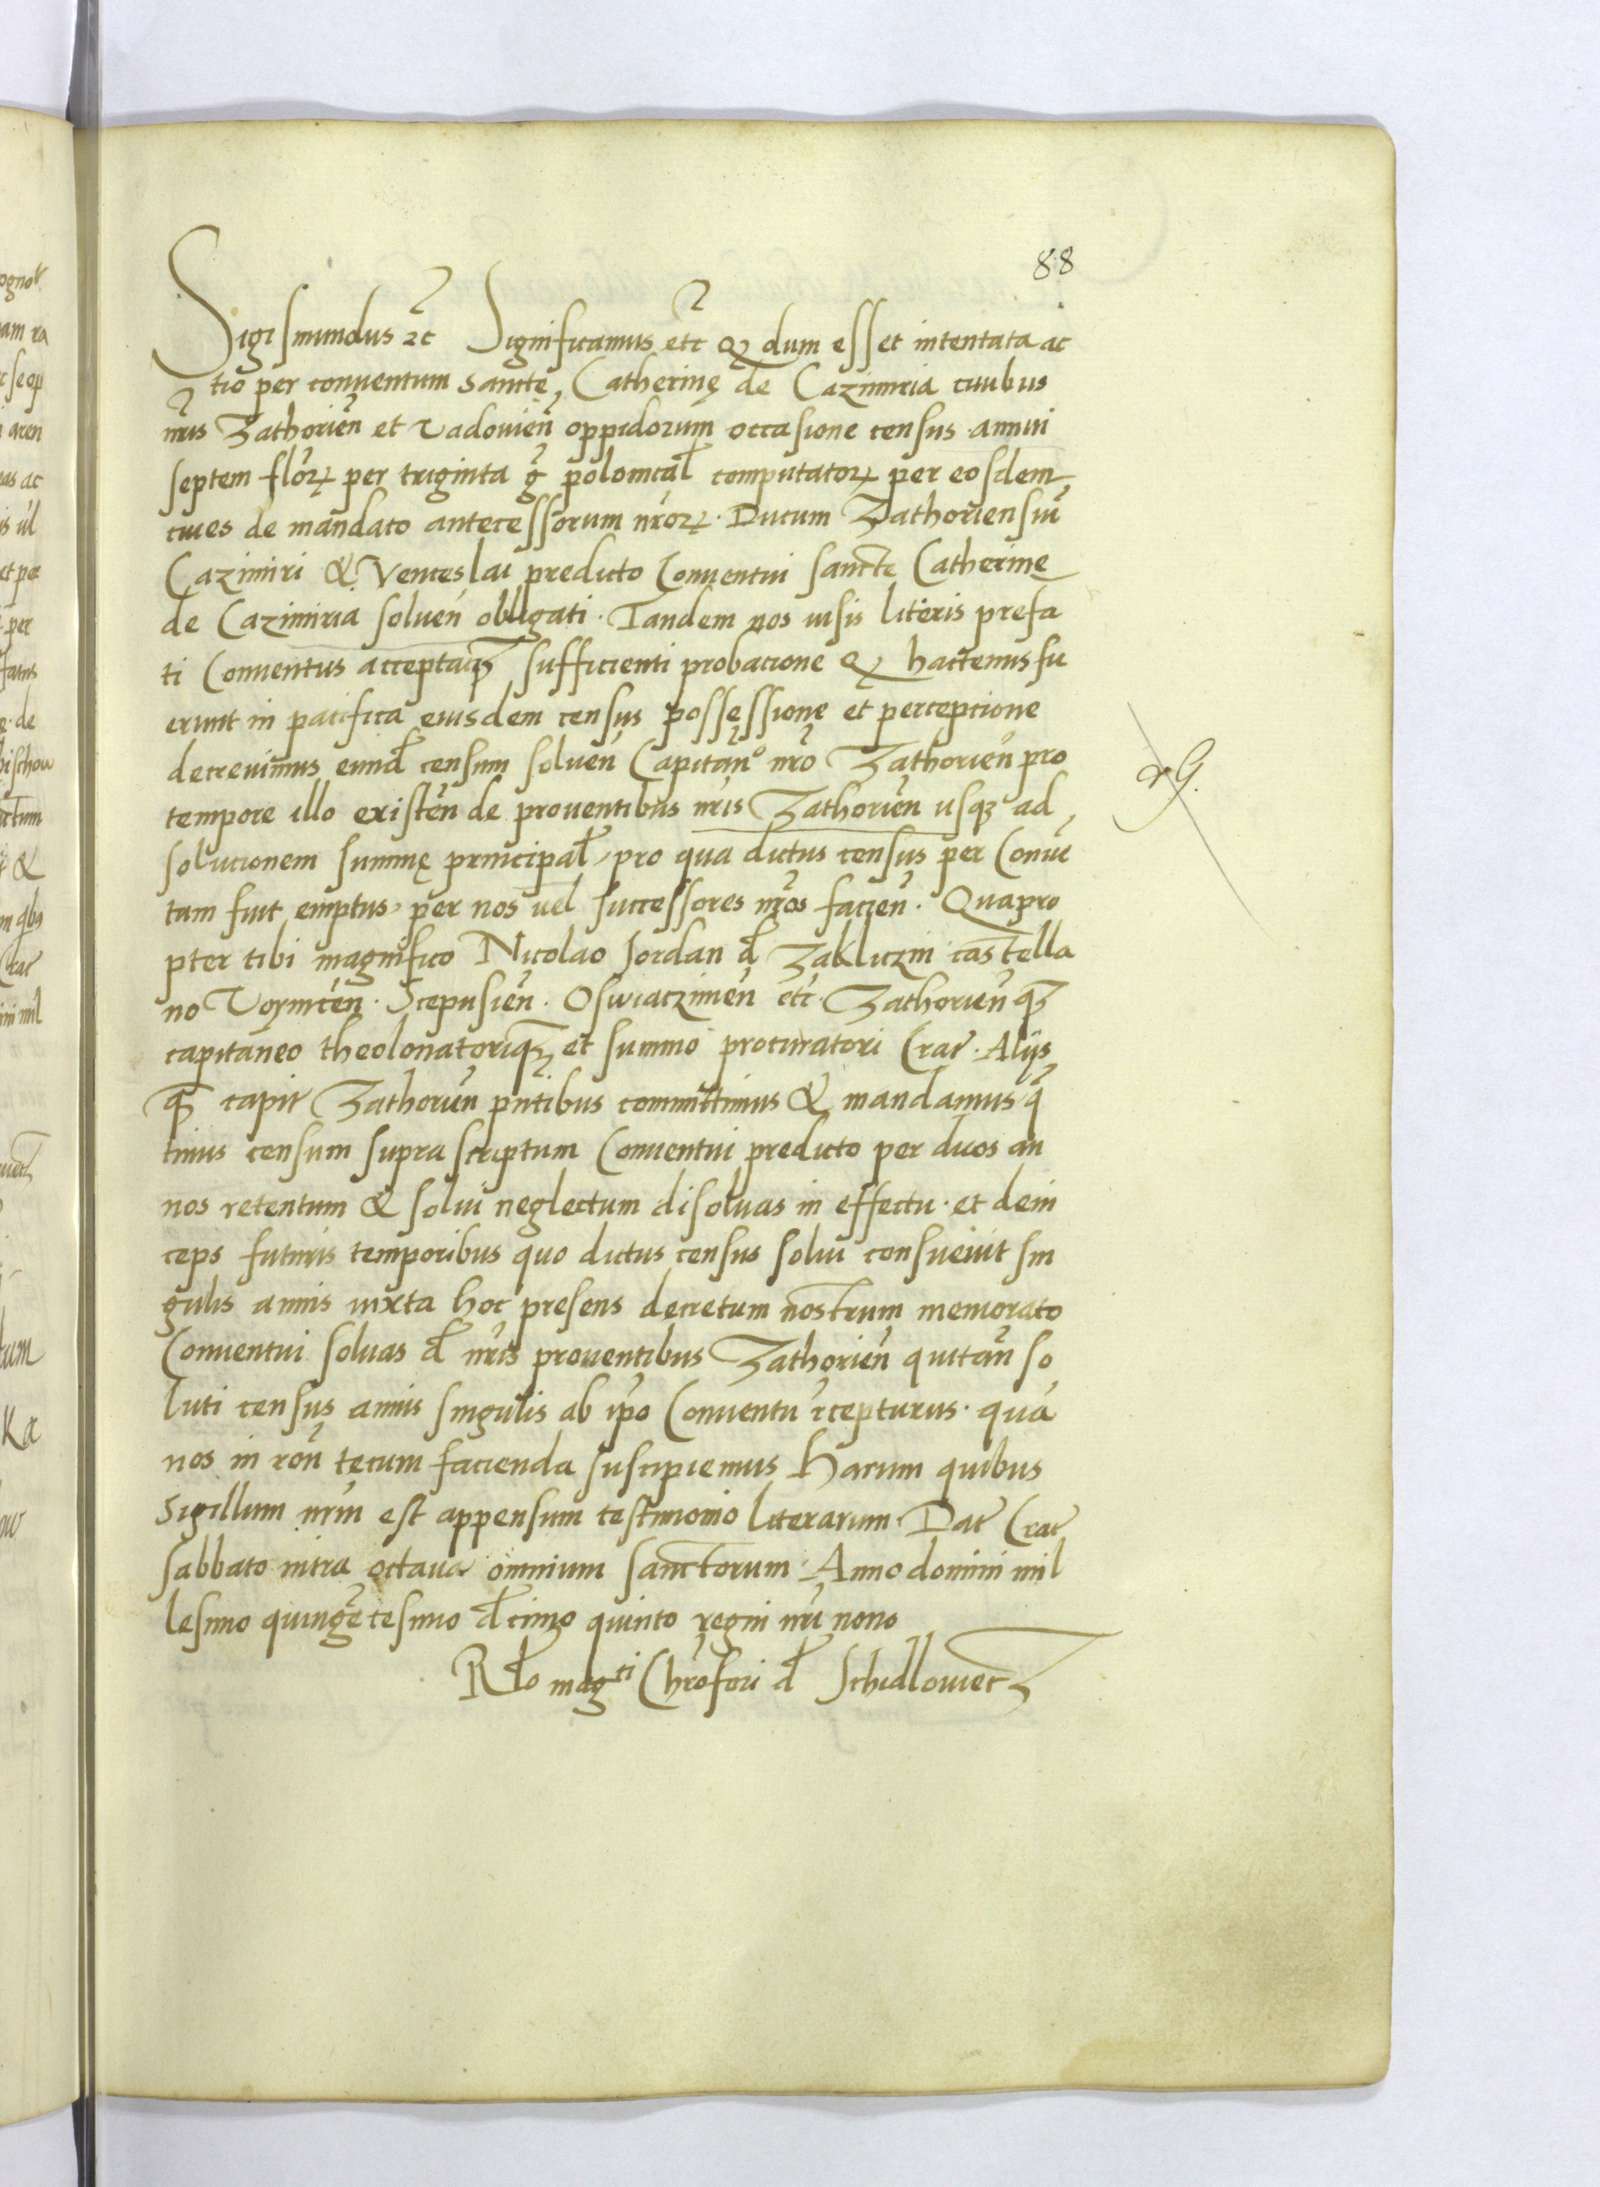 88
Sigismundus etc Significamus etc Qz dum esset intentata ac
tio per conuentum Sancte Catherinę de Cazimiria ciuibus
nr̃is Zathorieñ et Vadouieñ oppidorum occasione census annui
septem florꝝ per triginta g̃ polonicał computatorꝝ per eosdem
ciues de mandato antecessorum nr̃orꝝ. Ducum Zathoriensiũ
Cazimiri & Venceslai predicto Conuentui sancte Catherinę
de Cazimiria solueñ obligati. Tandem nos uisis literis prefa
ti Conuentus acceptaqꝫ sufficienti probacione Qz hactenus fu
erunt in pacifica eiusdem census possessione et perceptione
decreuimus eund̃ censum solueñ Capitañº nr̃o Zathorieñ pro
tempore illo existeñ de prouentibus nr̃is Zathorieñ usqꝫ ad
solucionem summę principał, pro qua dictus census per Conuẽ
tum fuit emptus, per nos uel successores nr̃os facieñ. Quapro
pter tibi magnifico Nicolao Jordan d̃ Zakliczin castella
no Voyniceñ. Scepusieñ. Oswiaczimeñ etc. Zathorieñ qꝫ
capitaneo theolonatoriqꝫ et summo procuratori Crac̃. Aliis
qꝫ capit̃ Zathorieñ pñtibus committimus & mandamus q̃
tinus censum supra scriptum Conuentui predicto per duos an
nos retentum & solui neglectum disoluas in effectu. et dein
ceps futuris temporibus quo dictus census solui consueuit sin
gulis annis iuxta hoc presens decretum nostrum memorato
Conuentui soluas d̃ nr̃is prouentibus Zathorieñ quitañ so
luti census annis singulis ab ip̃o Conuentu r̃cepturus. quã
nos in roñ tecum facienda suscipiemus Harum quibus
Sigillum nr̃m est appensum testimonio literarum. Dat̃ Crac̃
sabbato intra octauas omnium sanctorum. Anno domini mil
lesimo quingẽtesimo d̃cimo quinto regni nr̃i nono
Rl̃o magᶜⁱ Chr̃ofori d̃ Schidlowiecz